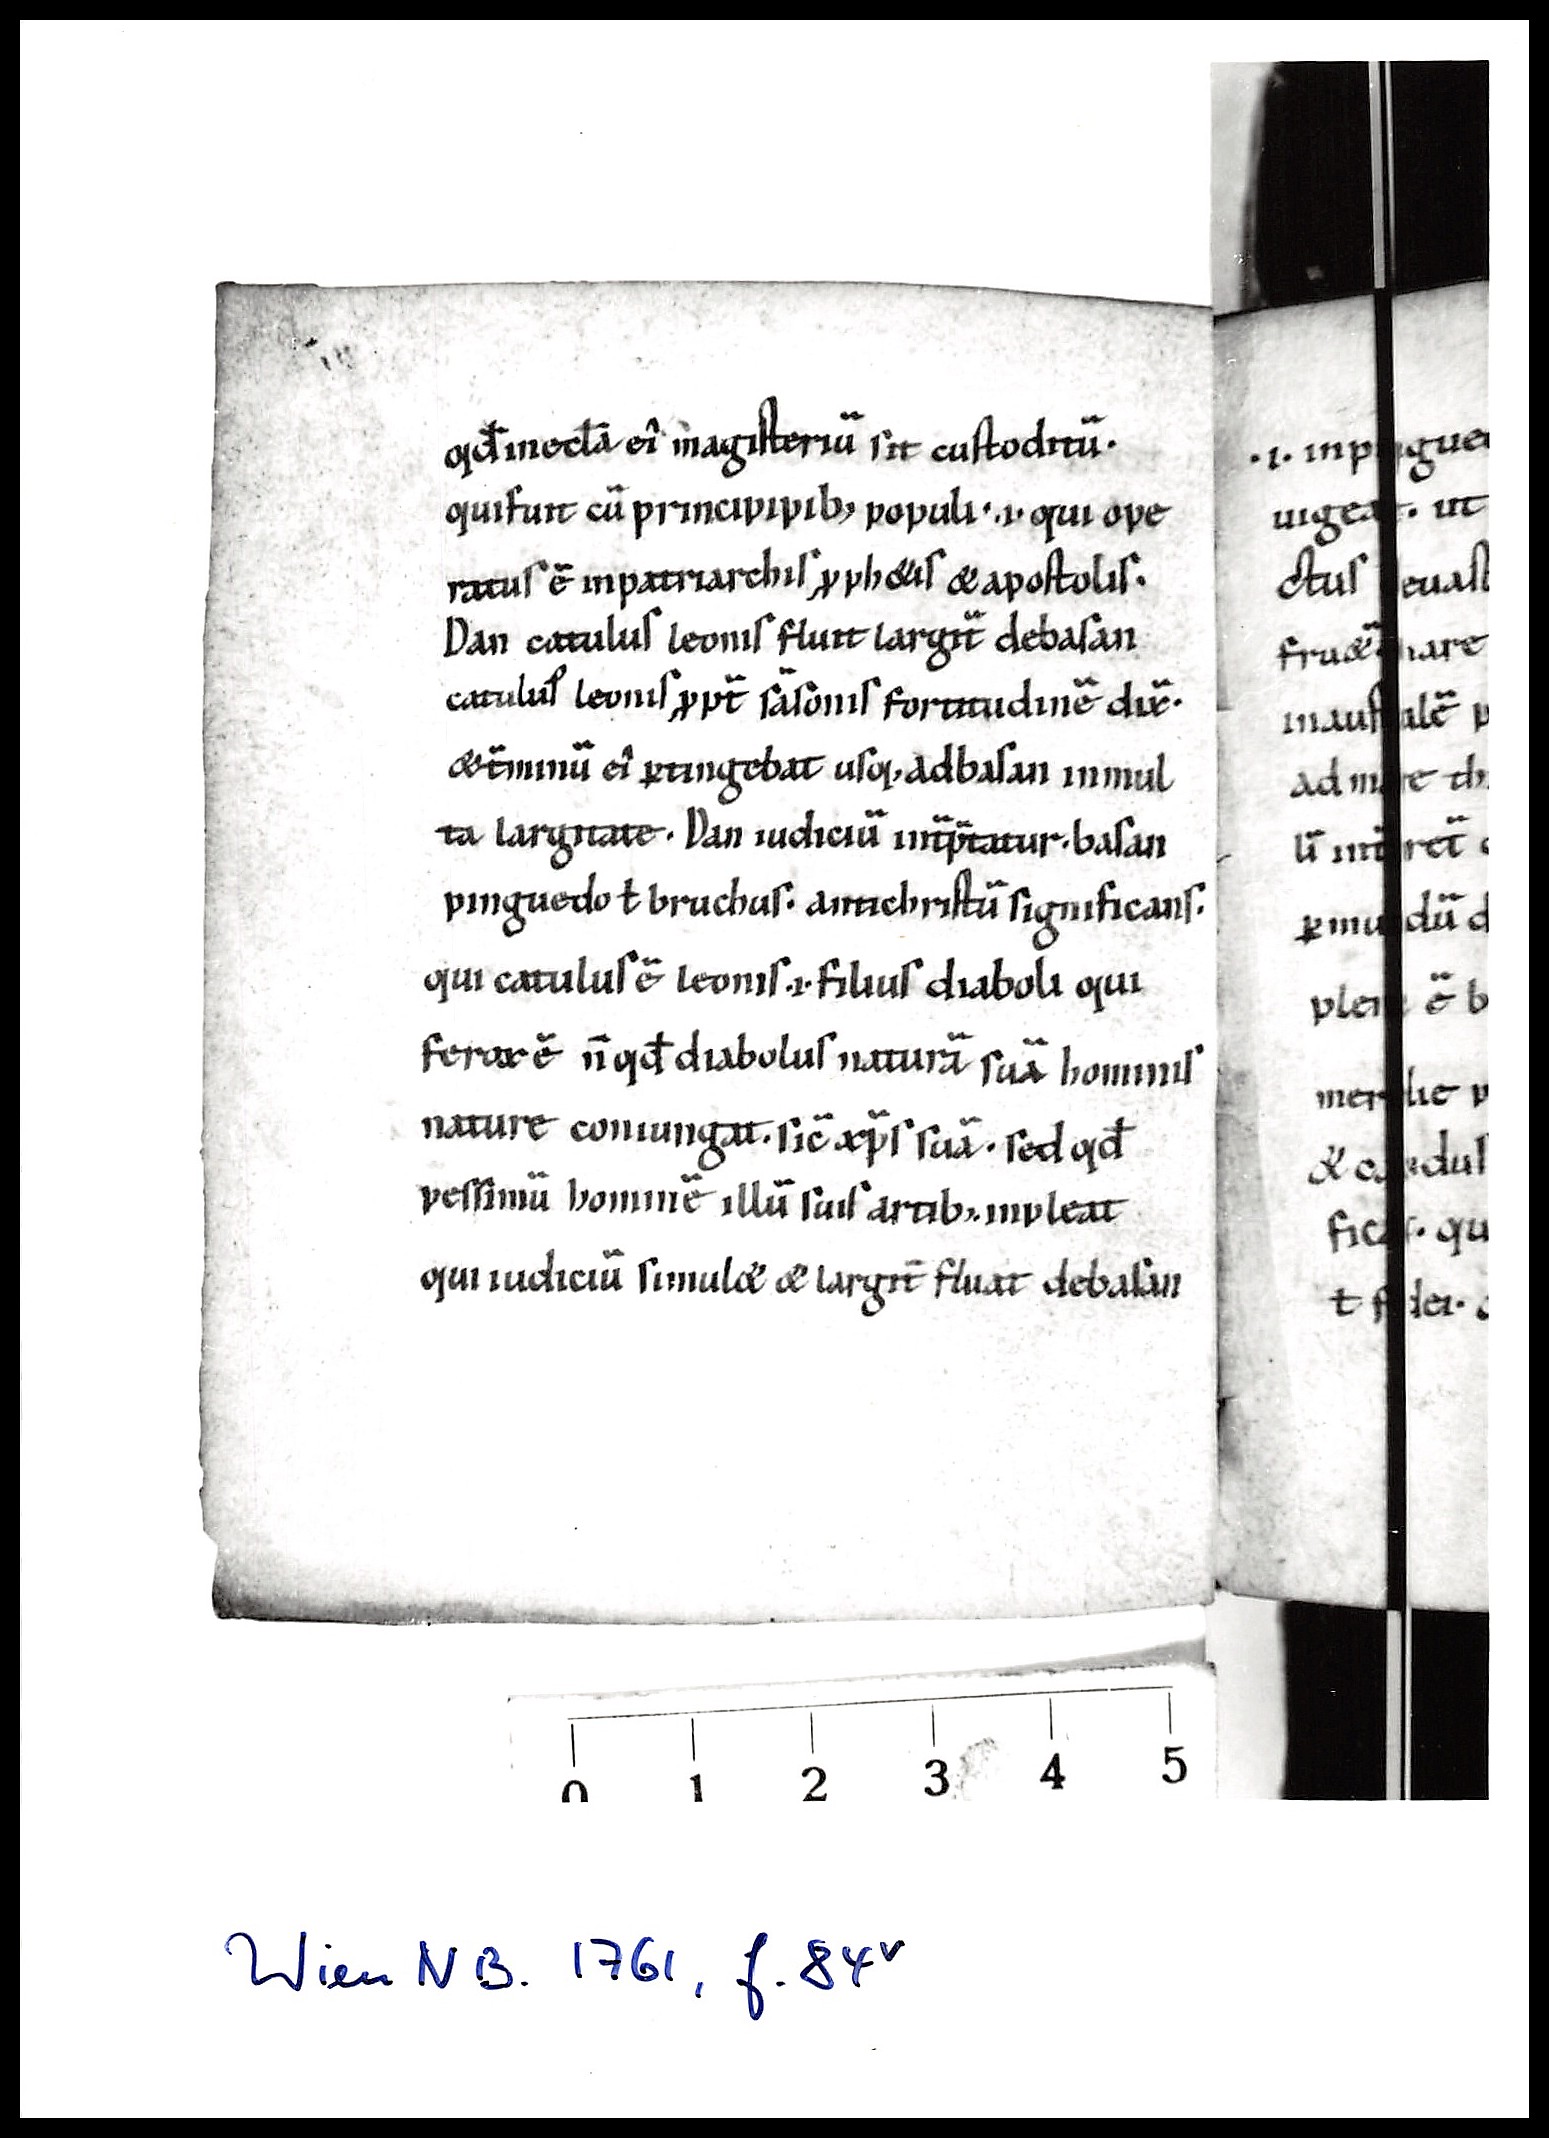 qđ inecła ei᷒ magisteriū sit custoditū·
qui fuit cū principipib; populi· ·i· qui ope
ratus ē inpatriarchis ꝓph&is & apostolis·
Dan catulus leonis fluit largiť debasan
catulus leonis ꝓpť sāsonis fortitudinē dix̄·
& t̄minū ei᷒ ꝑtingebat usq; adbasan inmul
ta largitate· Dan iudiciū int̄p̄tatur· basan
pinguedo ł bruchus· antichristū significans·
qui catulus ē leonis ·i· filius diaboli qui
ferox ē n̄ qđ diabolus naturā suā hominis
nature coniungat· sic̄ xp̄s suā· sed qđ
pessimū hominē illū suis artib; inpleat
qui iudiciū simul& & largit̄ fluat debasan
·i· inpingue
uigeat· ut
ctus euast
fru& nare
inaustralē p
ad mare th
ꝑ mundū d
plen ē b
& cardus
ficat· qu
ł fidei·
0 1 2 3 4 5
Wien NB. 1761, f. 84v